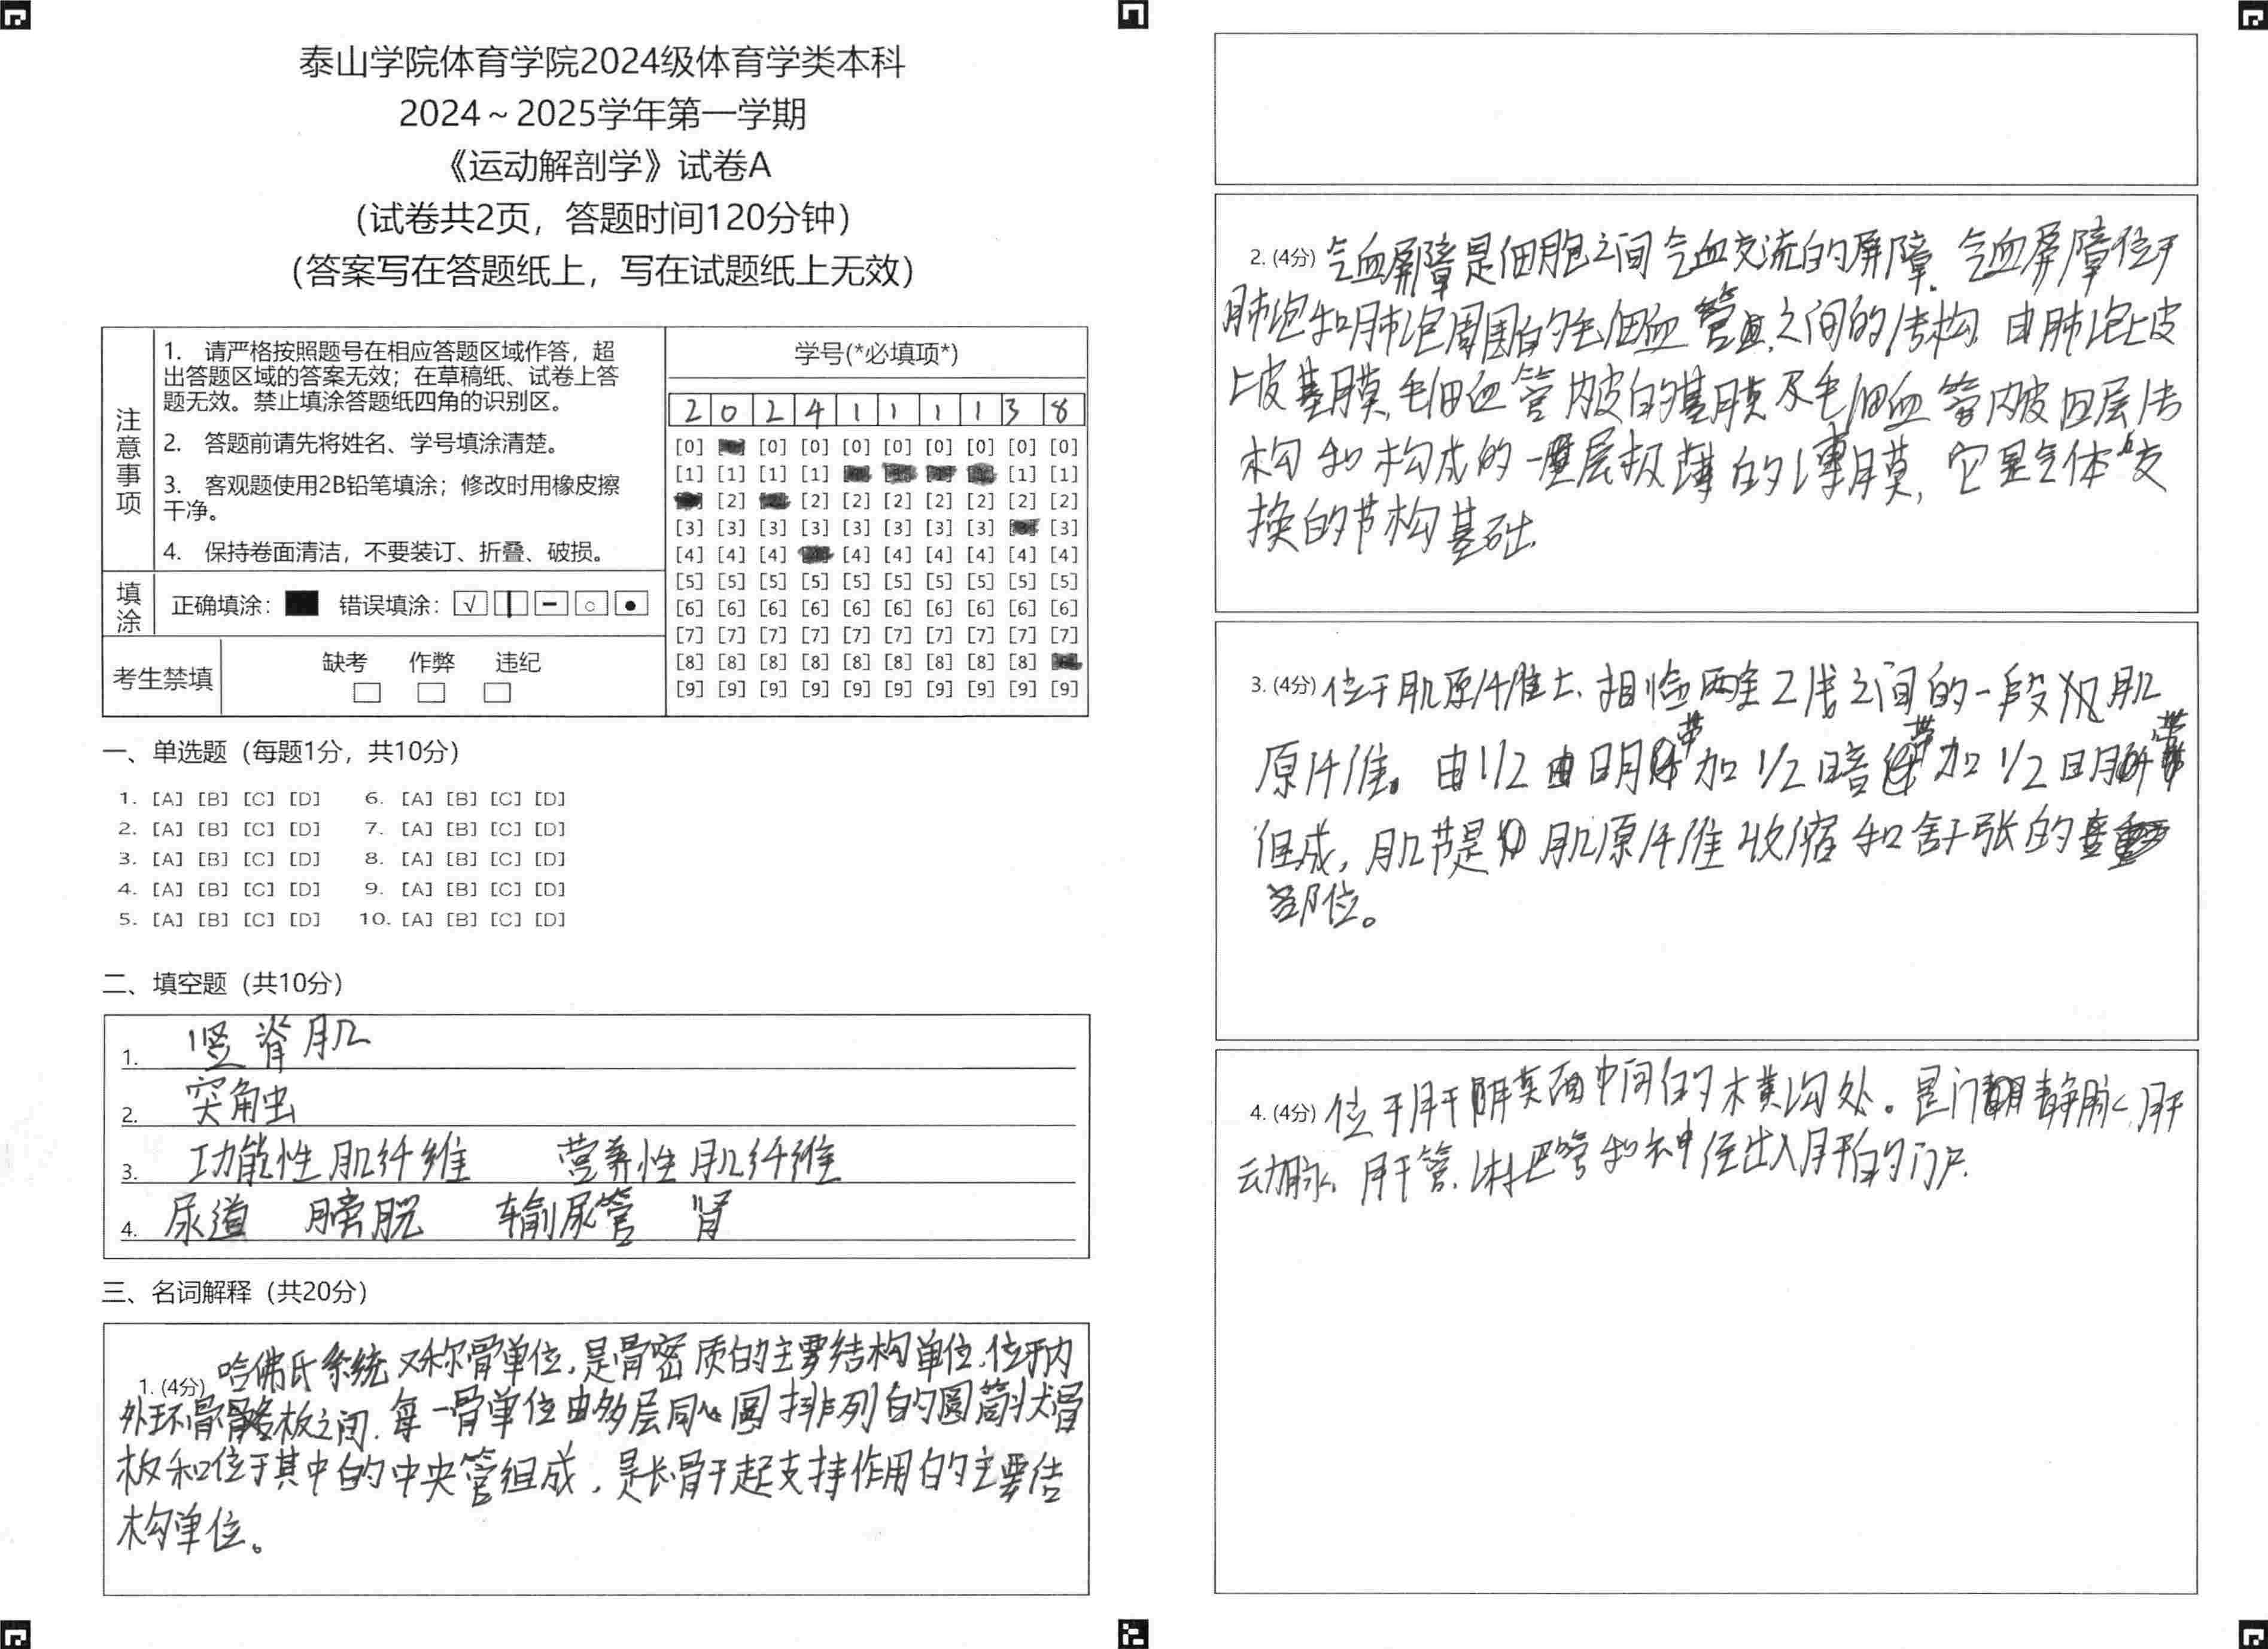 泰山学院体育学院2024级体育学类本科
2024～2025学年第一学期
《运动解剖学》试卷A
（试卷共2页，答题时间120分钟）
（答案写在答题纸上，写在试题纸上无效）
注意事项
1. 请严格按照题号在相应答题区域作答，超
出答题区域的答案无效；在草稿纸、试卷上答
题无效。禁止填涂答题纸四角的识别区。
2. 答题前请先将姓名、学号填涂清楚。
3. 客观题使用2B铅笔填涂；修改时用橡皮擦
干净。
4. 保持卷面清洁，不要装订、折叠、破损。
填涂 正确填涂： 错误填涂：
考生禁填 缺考 作弊 违纪
学号(*必填项*)
2 0 2 4 1 1 1 1 3 8
[0] [0] [0] [0] [0] [0] [0] [0] [0]
[1] [1] [1] [1] [1] [1]
[2] [2] [2] [2] [2] [2] [2] [2]
[3] [3] [3] [3] [3] [3] [3] [3] [3]
[4] [4] [4] [4] [4] [4] [4] [4] [4]
[5] [5] [5] [5] [5] [5] [5] [5] [5] [5]
[6] [6] [6] [6] [6] [6] [6] [6] [6] [6]
[7] [7] [7] [7] [7] [7] [7] [7] [7] [7]
[8] [8] [8] [8] [8] [8] [8] [8] [8]
[9] [9] [9] [9] [9] [9] [9] [9] [9] [9]
一、单选题（每题1分，共10分）
1. [A] [B] [C] [D] 6. [A] [B] [C] [D]
2. [A] [B] [C] [D] 7. [A] [B] [C] [D]
3. [A] [B] [C] [D] 8. [A] [B] [C] [D]
4. [A] [B] [C] [D] 9. [A] [B] [C] [D]
5. [A] [B] [C] [D] 10. [A] [B] [C] [D]
二、填空题（共10分）
1. 竖脊肌
2. 突触
3. 功能性肌纤维 营养性肌纤维
4. 尿道 膀胱 输尿管 肾
三、名词解释（共20分）
1. (4分) 哈佛氏系统又称骨单位，是骨密质的主要结构单位，位于内
外环骨板之间，每一骨单位由多层同心圆排列的圆筒状骨
板和位于其中的中央管组成，是长骨干起支持作用的主要结
构单位。
2. (4分) 气血屏障是细胞之间气血交流的屏障。气血屏障位于
肺泡和肺泡周围的毛细血管之间的结构，由肺泡上皮
上皮基膜，毛细血管内皮的基膜及毛细血管内皮四层结
构和构成的一层极薄的薄膜，它是气体交
换的节构基础。
3. (4分) 位于肌原纤维上，相临两条Z线之间的一段肌
原纤维。由1/2明带加1/2暗带加1/2明带
组成，肌节是肌原纤维收缩和舒张的
部位。
4. (4分) 位于肝脏面中间的横沟处。是门静脉，肝
动脉，肝管，淋巴管和神经出入肝的门户。